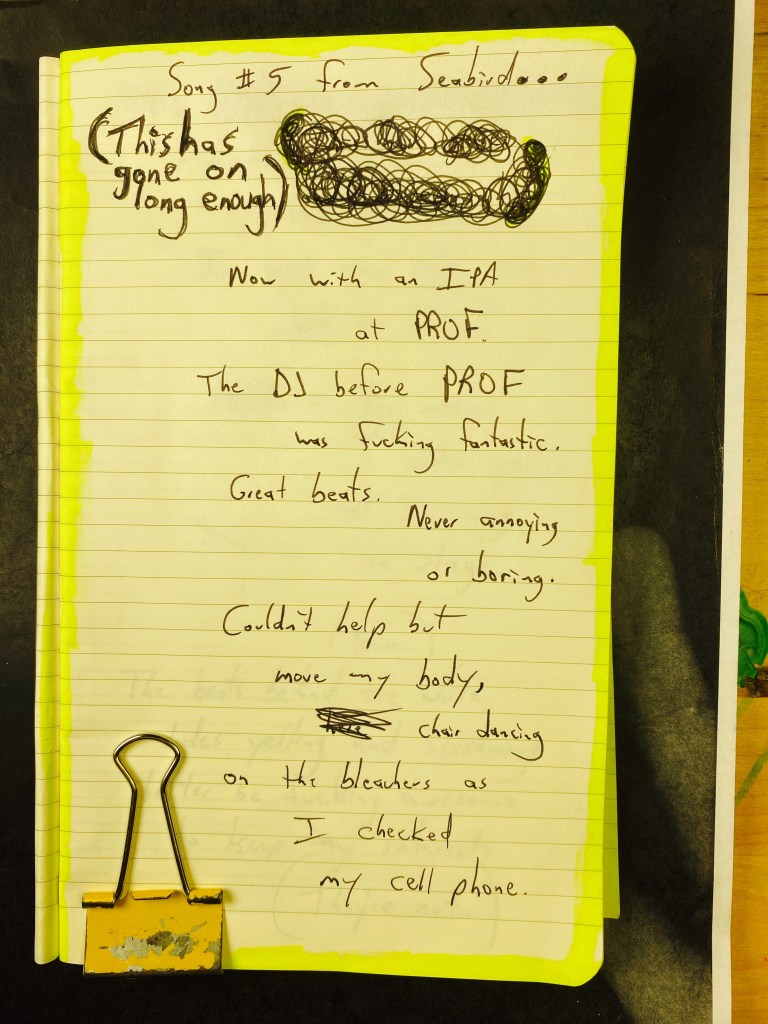 Song #5 from Seabird...
(This has
gone on
long enough)
Now with an IPA
at PROF.
The DJ before PROF
was fucking fantastic.
Great beats.
Never annoying
or boring.
Couldn't help but
move my body,
chair dancing
on the bleachers as
I checked
my cell phone.